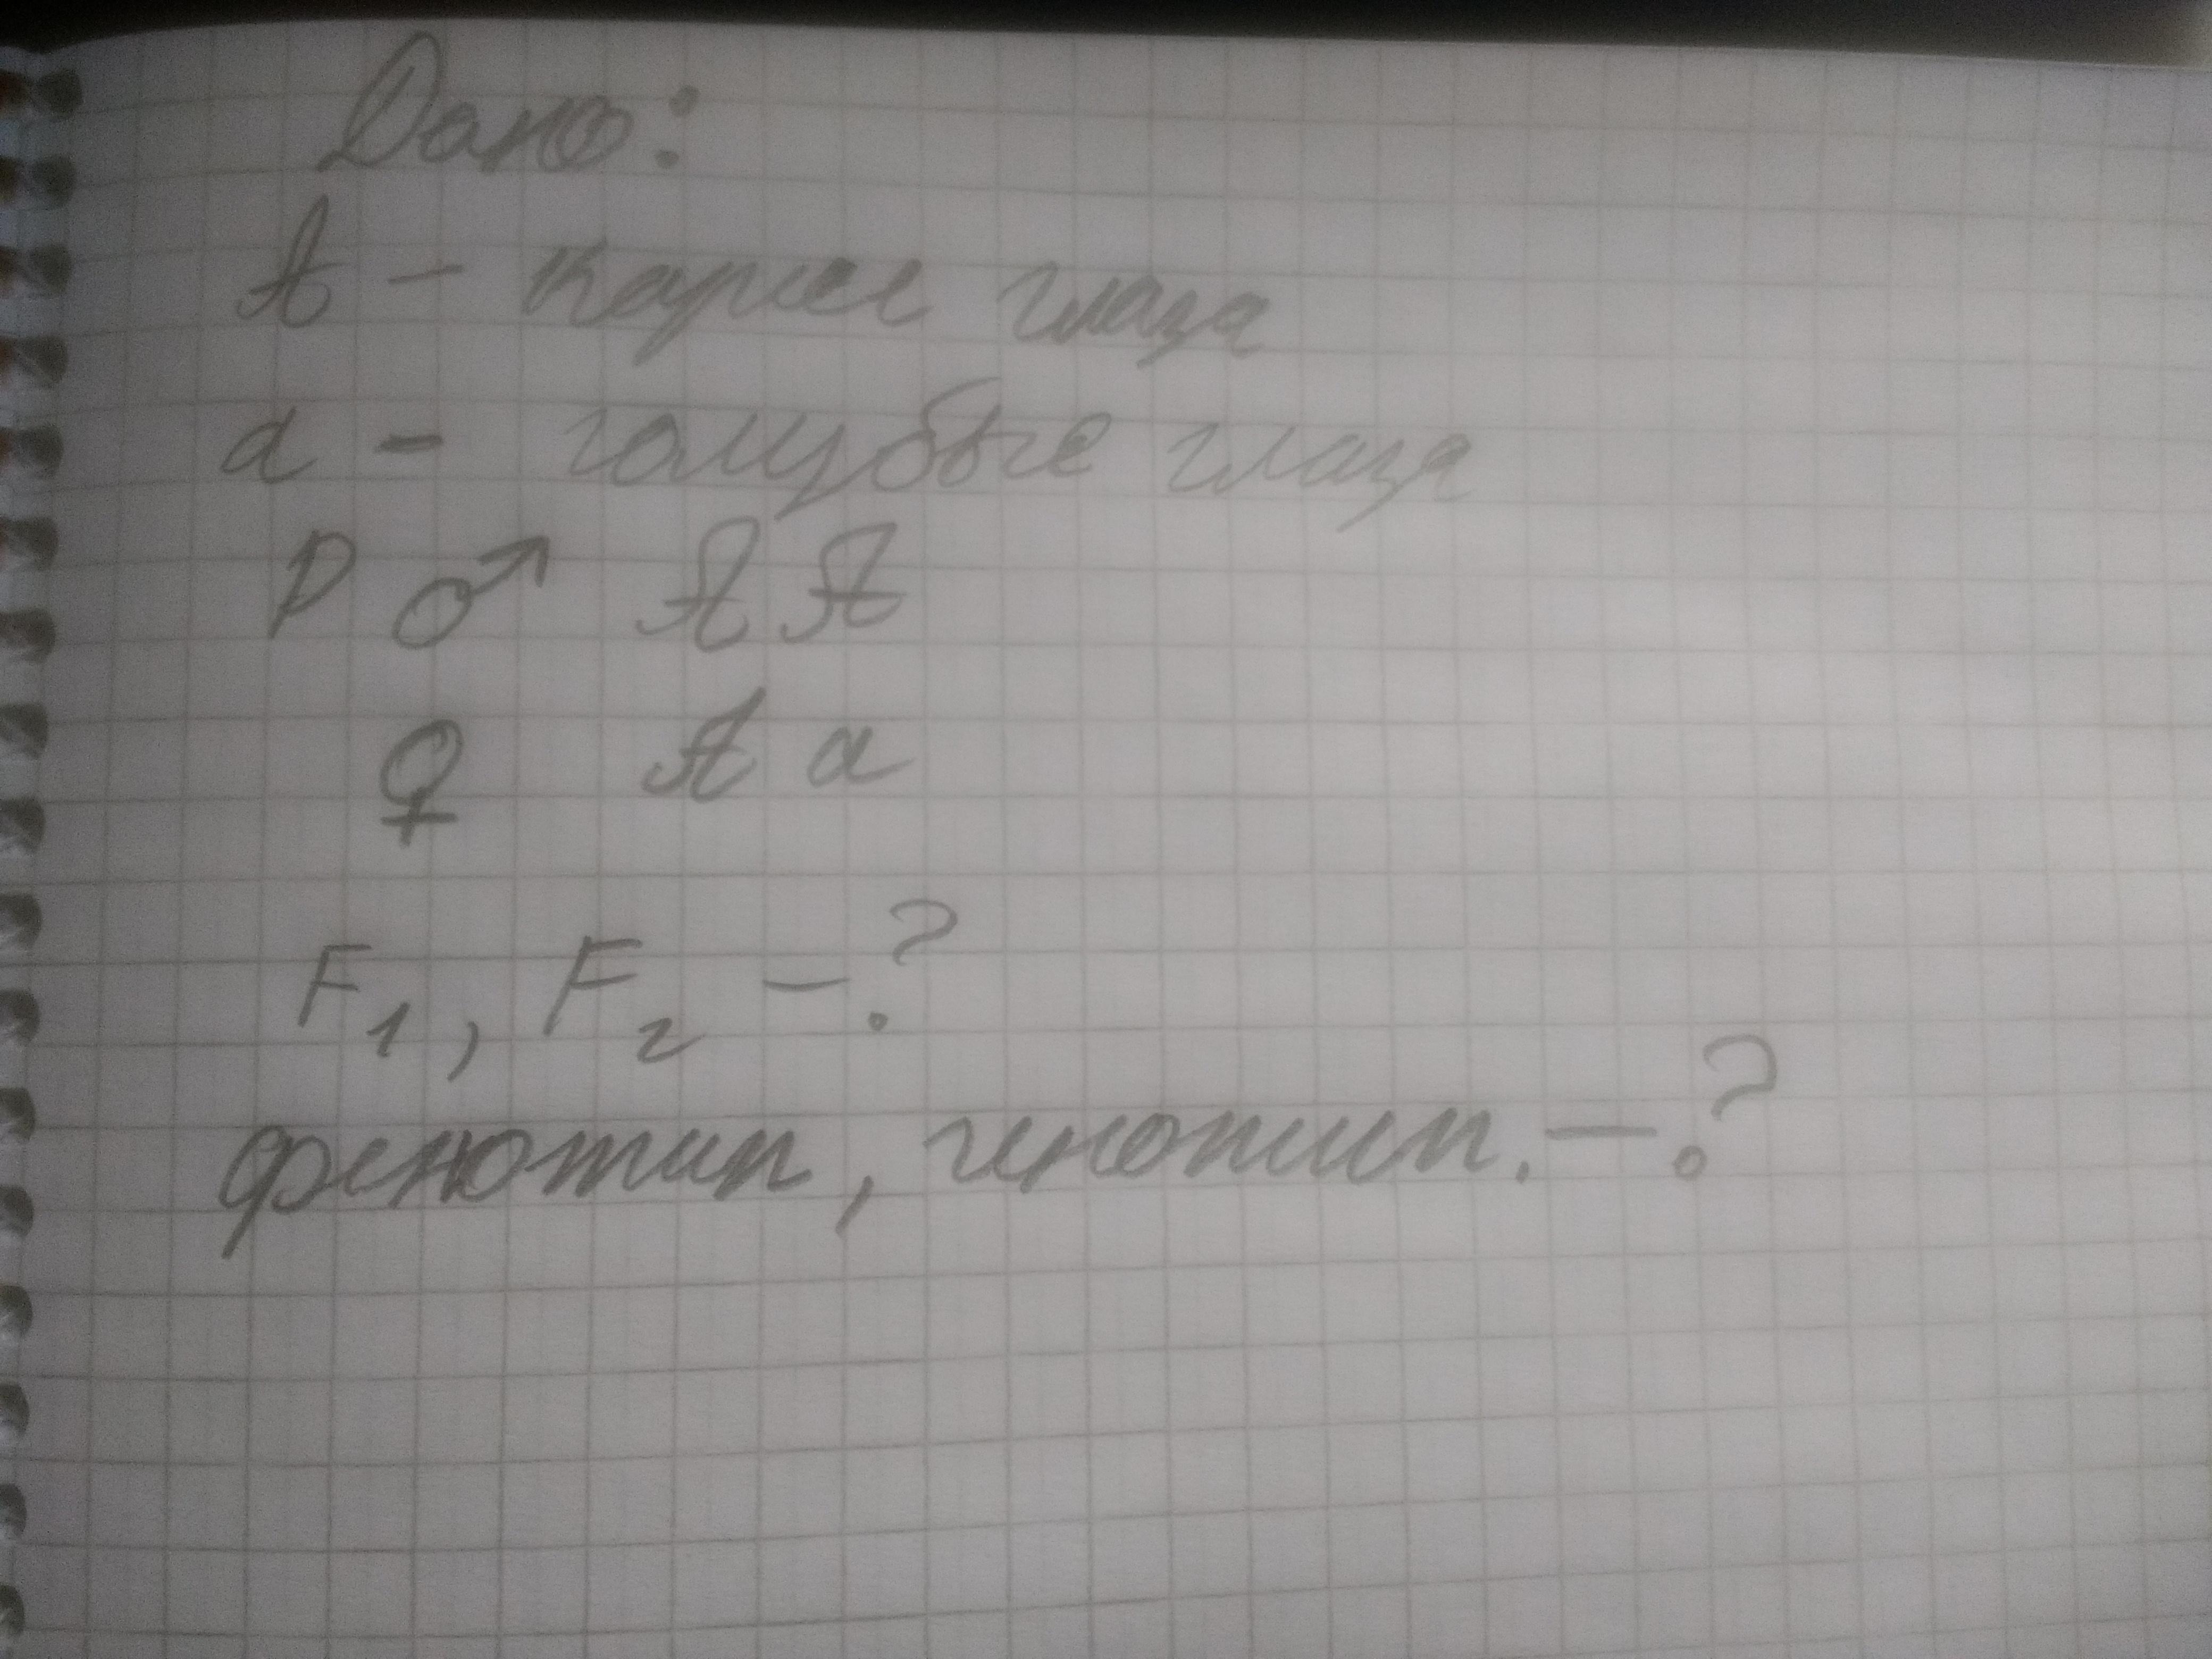 Дано:
A - карие глаза
a - голубые глаза
P ♂ AA
♀ Aa
F1, F2 -?
фенотип, генотип. -?